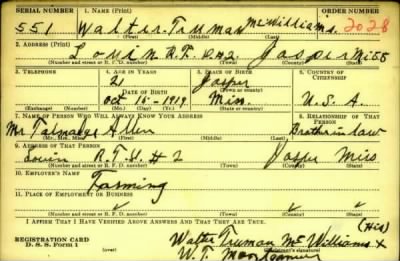 SERIAL NUMBER 1. NAME (Print) ORDER NUMBER
551 Walter Truman McWilliams 2028
(First) (Middle) (Last)
2. ADDRESS (Print)
Louin R.F.D. #2 Jasper Miss
(Number and street or R. F. D. number) (Town) (County) (State)
3. TELEPHONE 4. AGE IN YEARS 5. PLACE OF BIRTH 6. COUNTRY OF CITIZENSHIP
21 Jasper
DATE OF BIRTH (Town or county)
Oct 14-1919 Miss. U.S.A.
(Exchange) (Number) (Mo.) (Day) (Yr.) (State or country)
7. NAME OF PERSON WHO WILL ALWAYS KNOW YOUR ADDRESS 8. RELATIONSHIP OF THAT PERSON
Mr Talmadge Allen Brother in law
(Mr., Mrs., Miss) (First) (Middle) (Last)
9. ADDRESS OF THAT PERSON
Louin #2 Jasper Miss
(Number and street or R. F. D. number) (Town) (County) (State)
10. EMPLOYER'S NAME
Farming
11. PLACE OF EMPLOYMENT OR BUSINESS
(Number and street or R. F. D. number) (Town) (County) (State)
I AFFIRM THAT I HAVE VERIFIED ABOVE ANSWERS AND THAT THEY ARE TRUE.
(His)
REGISTRATION CARD Walter Truman McWilliams X
D. S. S. Form 1 (Registrant's signature)
W. T.